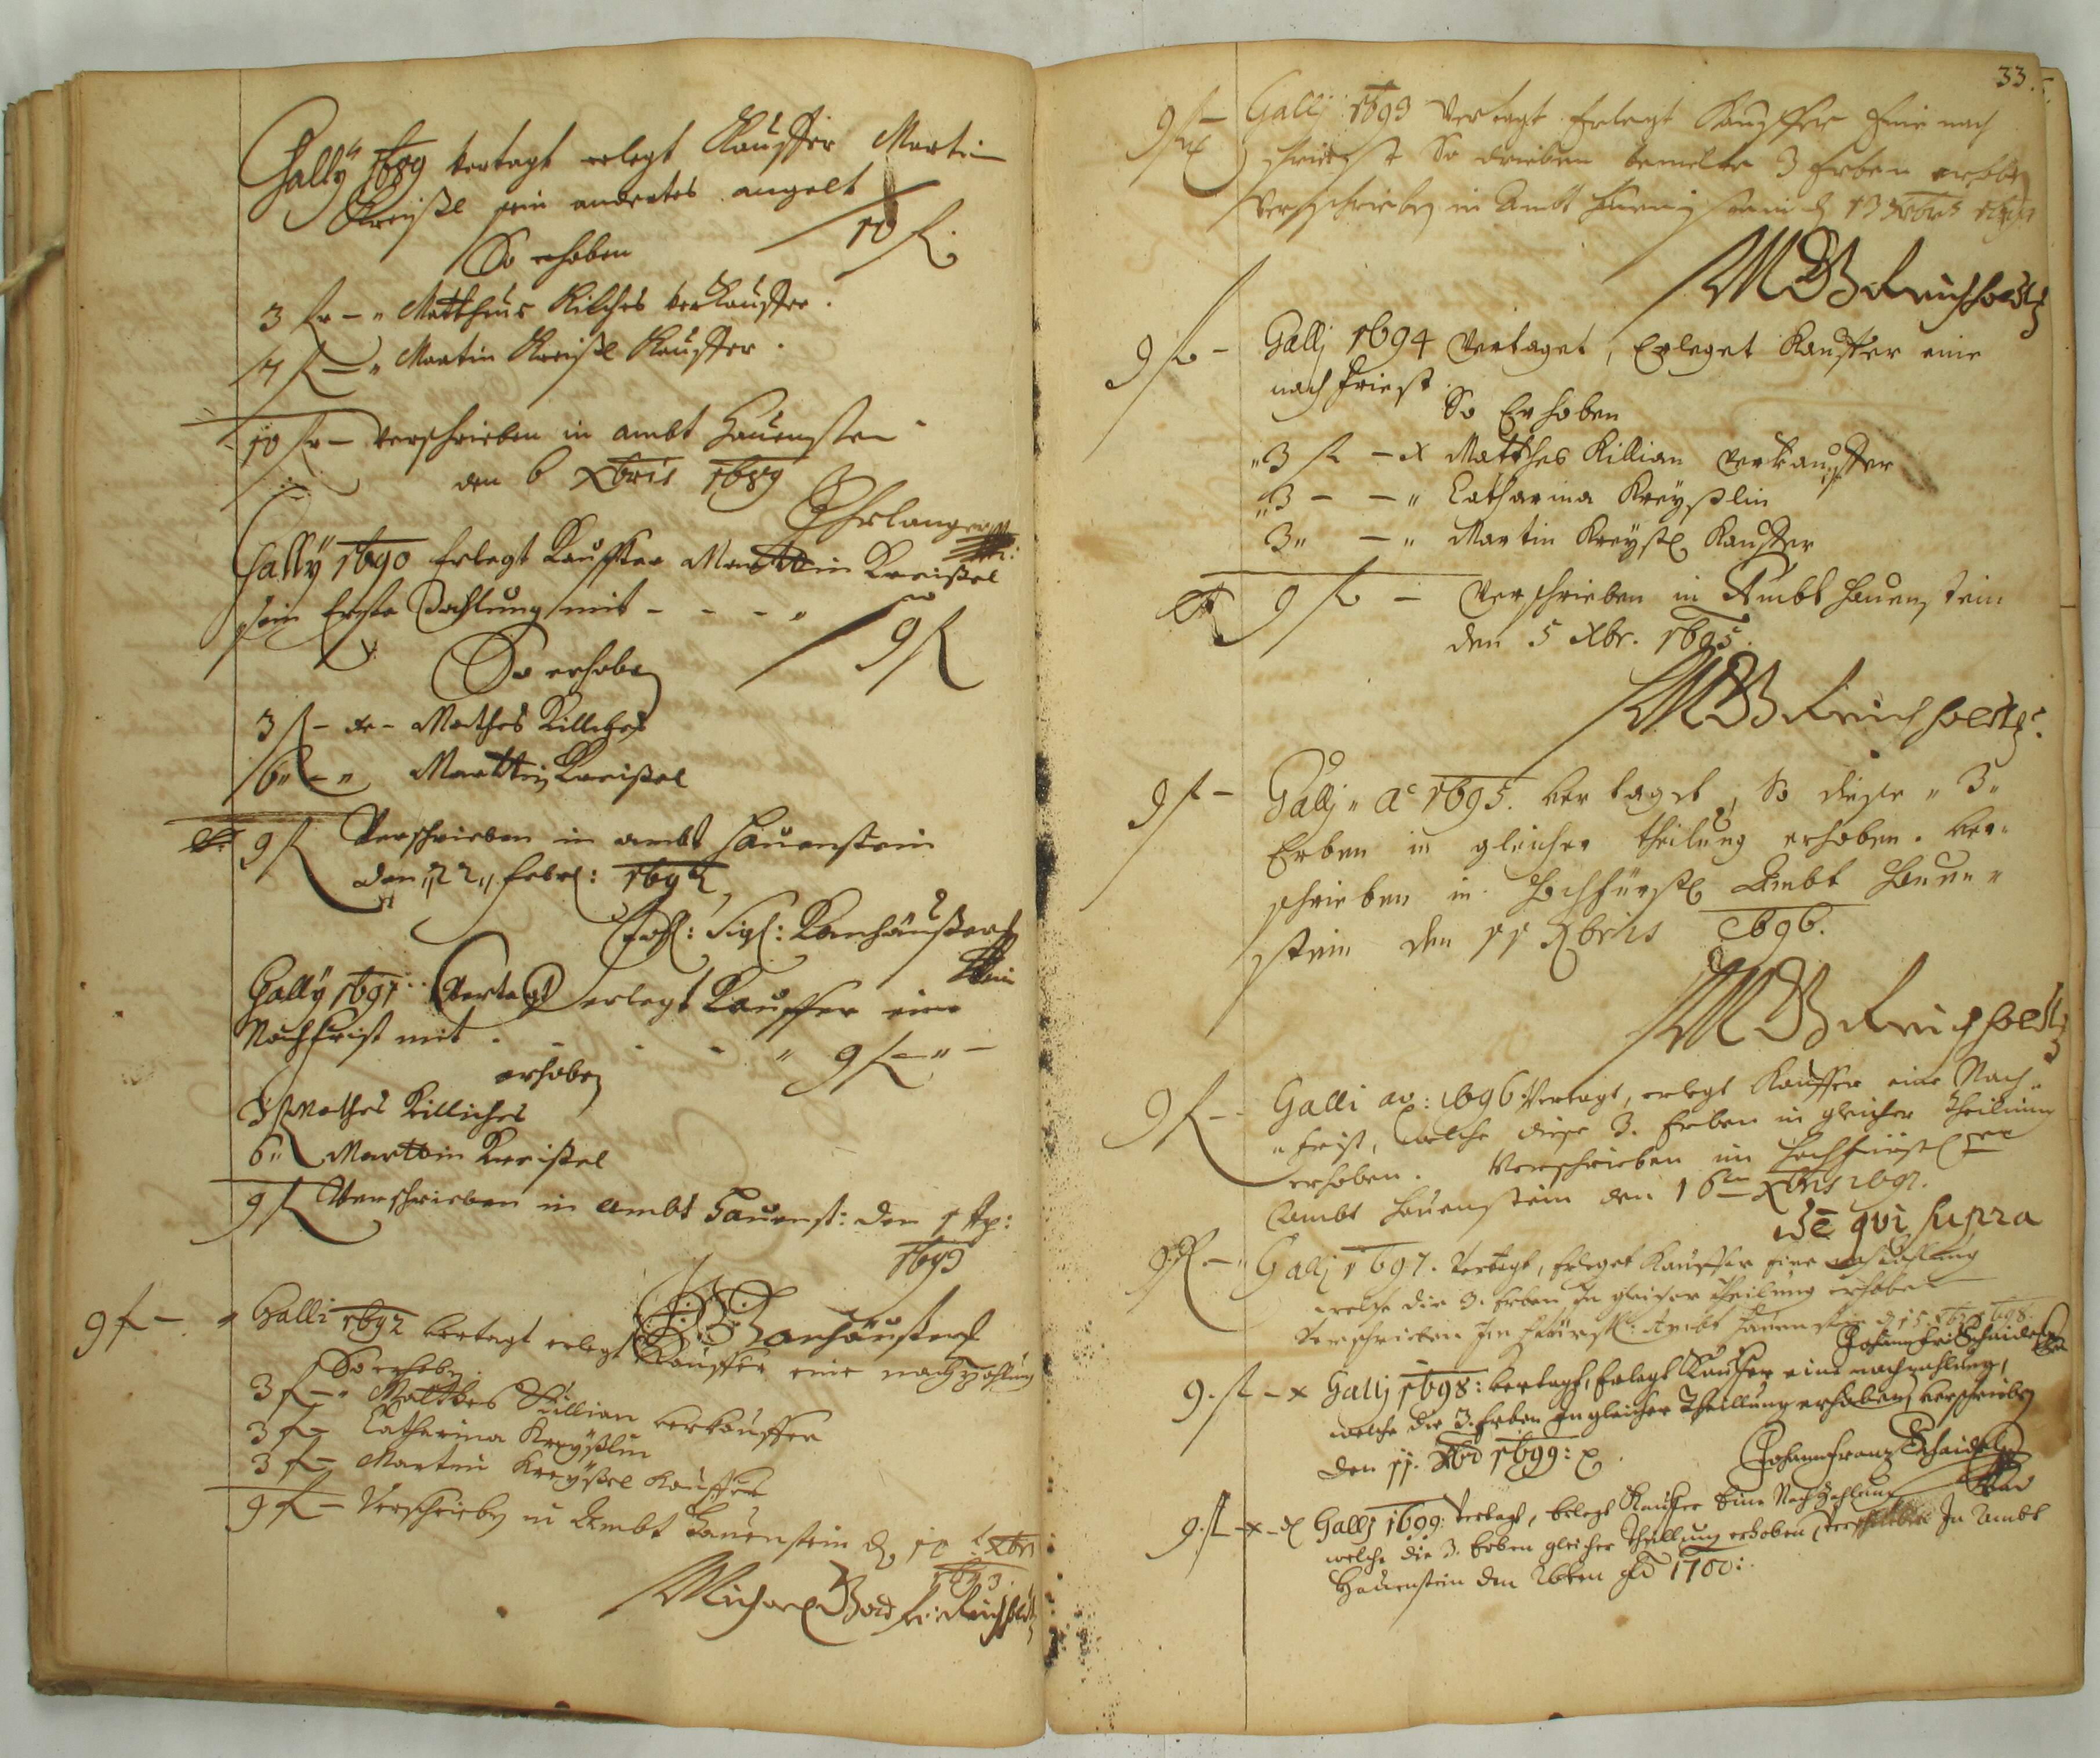 Gally 1689 vertagt erlegt Kauffer Martin
Kreißl sein andertes angelt
10 f.
So erhoben
3 fr – " Matthäus Kilches verkauffer.
7 f – " Martin Kreißl Kauffer.
10 fr – verschrieben in ambt Hauenstein
den 6 Xbris 1689
Gally 1690 Erlegt Kauffer Marttin Kreißel
sein Erste Zahlung mit - - - "
9 f
So erhoben
3 f – Mathes Killiches
6 " – " Marttin Kreißel
9 f Verschrieben in ambt Hauenstein
den 22 Febr:
Gally 1691 Vertagt erlegt Kauffer eine
Nachfrist mit . - - - " 9 f – " –
erhoben
3 f Mathes Killiches
6 " Marttin Kreißel
9 f Verschrieben in ambt Hauenst: den
1693
9 f – " Galli 1692 vertagt erlegt Kauffer eine nachzahlung
So erhoben
3 f – " Matthes Killian verkauffer
3 f – Catharina Kreyßlin
3 f – Martin Kreyßel Kauffer
9 f – Verschrieben in Ambt Hauenstein d. Xbr
1693.
Michael
33.
9 f – Gallj 1693 Vertagt Erlegt Kauffer Eine nach
frist So drieben bemelte 3 Erben erhoben
Verschrieben in Ambt Hauenstein d 13 Xbris
MB Reichholdt
9 f – Gallj 1694 Vertaget, Erleget Kauffer eine
nachfriest.
So Erhoben
" 3 f – x Matthes Killian Verkauffer
" 3 – – " Catharina Kreyßlin
3 " – " Martin Kreyßl Kauffer
9 f – Verschrieben in Ambt Hauenstein
den 5 Xbr. 1695.
MB Reichholdt
9 f – Gallj " Aº 1695. vertaget, So diese " 3 "
Erben in gleicher theilung erhoben. ver=
schrieben in Hochfürstl Ambt Hauen "
stein den 11 Xbris 1696.
MB Reichholdt
9 f – Galli ao: 1696 Vertagt, erlegt Kauffer eine Nach "
" frist, welche diese 3. Erben in gleicher theilung
erhoben. Verschrieben im Hochfürstl
Ambt Hauenstein den 16ten Xbris 1697.
qui supra
9 f – " Gallj 1697. Vertagt, Erleget Kauffer eine nachzahlung
welche die 3. Erben In gleicher theilung erhoben
Verschrieben Im Hfürstl: Ambt Hauenstein d 15. Xbr 1698.
9. f – x Gallj 1698: vertagt, Erlegt Kauffer eine nachzahlung,
welche die 3. Erben In gleicher Theillung erhoben, verschrieben
den 11. Xbr 1699:
Johann Franz Schaidel
9. f – x – d Gallj 1699: Vertagt, Erlegt Kauffer Eine Nachzahlung
welche die 3. Erben gleicher Theillung erhoben Verschrieben In Ambt
Hauenstein den 1700: